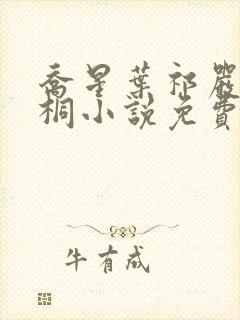 喬星葉祁嚴
桐小說免費
牛有成